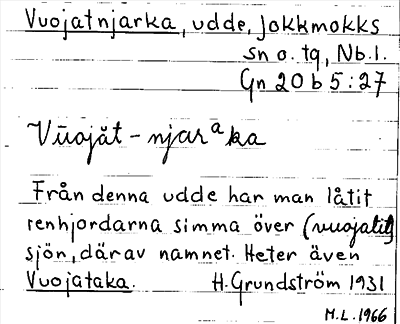 Vuojatnjarka, udde, Jokkmokks
sn o. tg, Nb. l.
Gn 20 b 5:27
Vūojăt - njarᵃka
Från denna udde har man låtit
renhjordarna simma över (vuojatit)
sjön, därav namnet. Heter även
Vuojataka. H. Grundström 1931
M.L. 1966